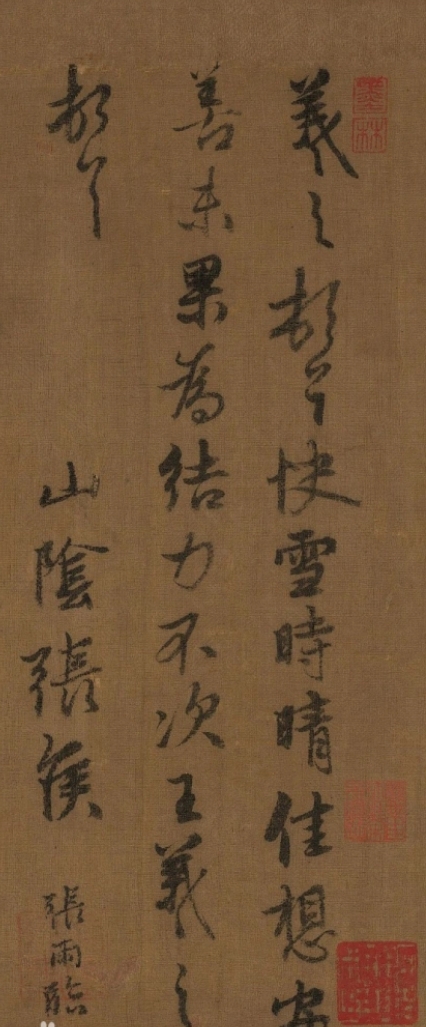 羲之頓首快雪時晴佳想安
善未果為結力不次王羲之
頓首
山陰張侯
張雨臨
墨林